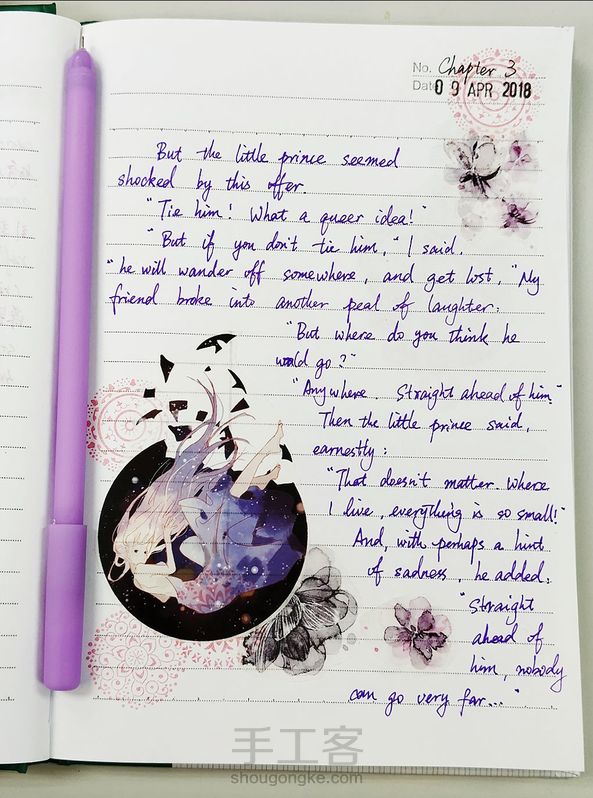 No. Chapter 3
Date 09 APR 2018
But the little prince seemed
shocked by this offer.
"Tie him! What a queer idea!"
"But if you don't tie him," I said.
"he will wander off somewhere, and get lost. "My
friend broke into another peal of laughter:
"But where do you think he
would go?"
"Anywhere. Straight ahead of him."
Then the little prince said,
earnestly:
"That doesn't matter. Where
I live, everything is so small!"
And, with perhaps a hint
of sadness, he added:
"Straight
ahead of
him, nobody
can go very far..."
手工客
shougongke.com